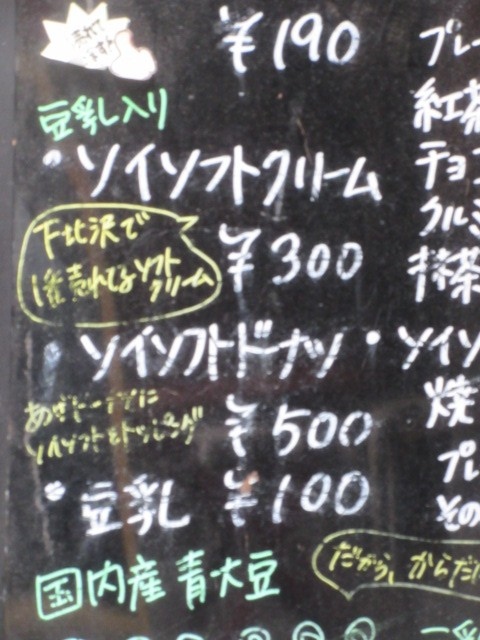 ¥190
プレー
豆乳入り
紅茶
・ソイソフトクリーム
チョコ
クルミ
下北沢で
1番売れてるソフト
クリーム
¥300
抹茶
・ソイソフトドーナツ
・ソイソ
焼
ソイソフトをトッピング
¥500
プレ
・豆乳 ¥100
その
国内産 青大豆
だから、からだに